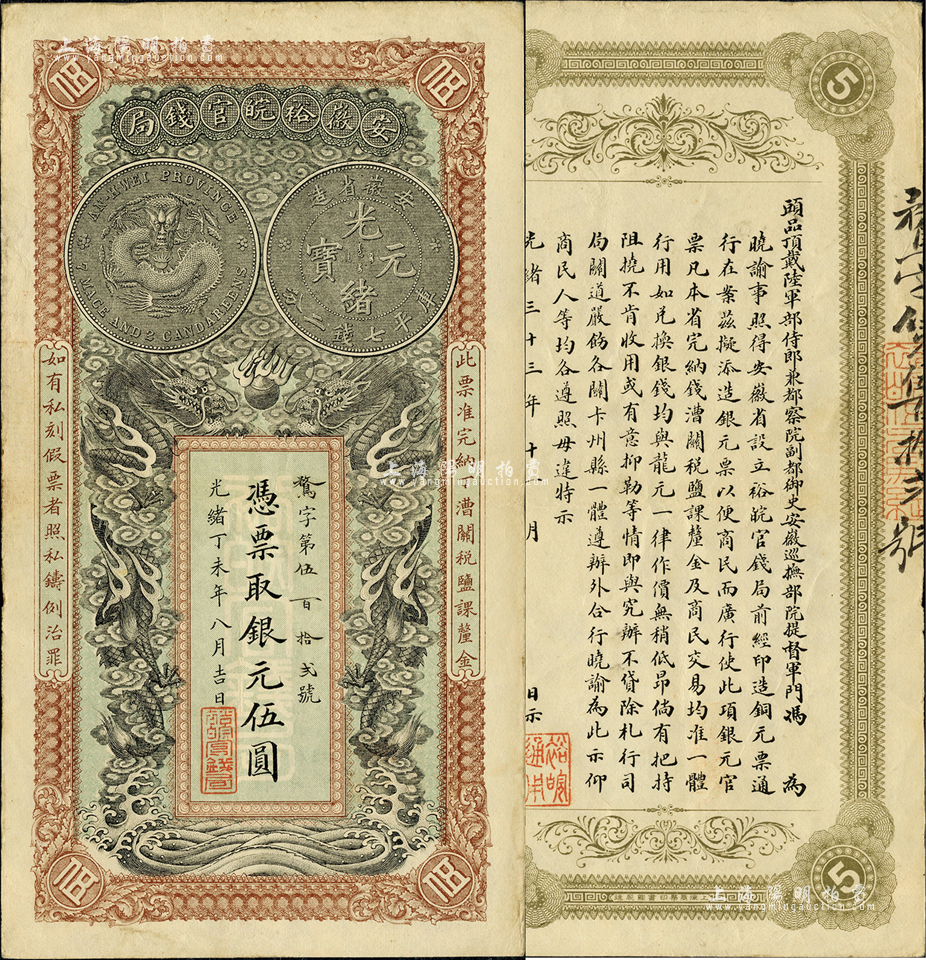 上海陽明拍賣
www.yangmingauction.com
伍
伍
安徽裕皖官錢局
AN-HWEI PROVINCE
7 MACE AND 2 CANDAREENS
安徽省造
光緒元寶
庫平七錢二分
此票准完納漕關稅鹽課釐金
如有私刻假票者照私鑄例治罪
字第伍百拾弍號
憑票取銀元伍圓
光緒丁未年八月吉日
伍
伍
上海陽明拍賣
www.yangmingauction.com
5
頭品頂戴陸軍部侍郎兼都察院副都御史安徽巡撫部院提督軍門馮 為
曉諭事照得安徽省設立裕皖官錢局前經印造銅元票通
行在案茲擬添造銀元票以便商民而廣行使此項銀元官
票凡本省完納錢漕關稅鹽課釐金及商民交易均准一體
行用如兌換銀錢均與龍元一律作價無稍低昂倘有把持
阻撓不肯收用或有意抑勒等情即與究辦不貸除札行司
局關道嚴飭各關卡州縣一體遵辦外合行曉諭為此示仰
商民人等均各遵照毋違特示
光緒三十三年十 月 日示
裕皖通用
5
上海陽明拍賣
www.yangmingauction.com